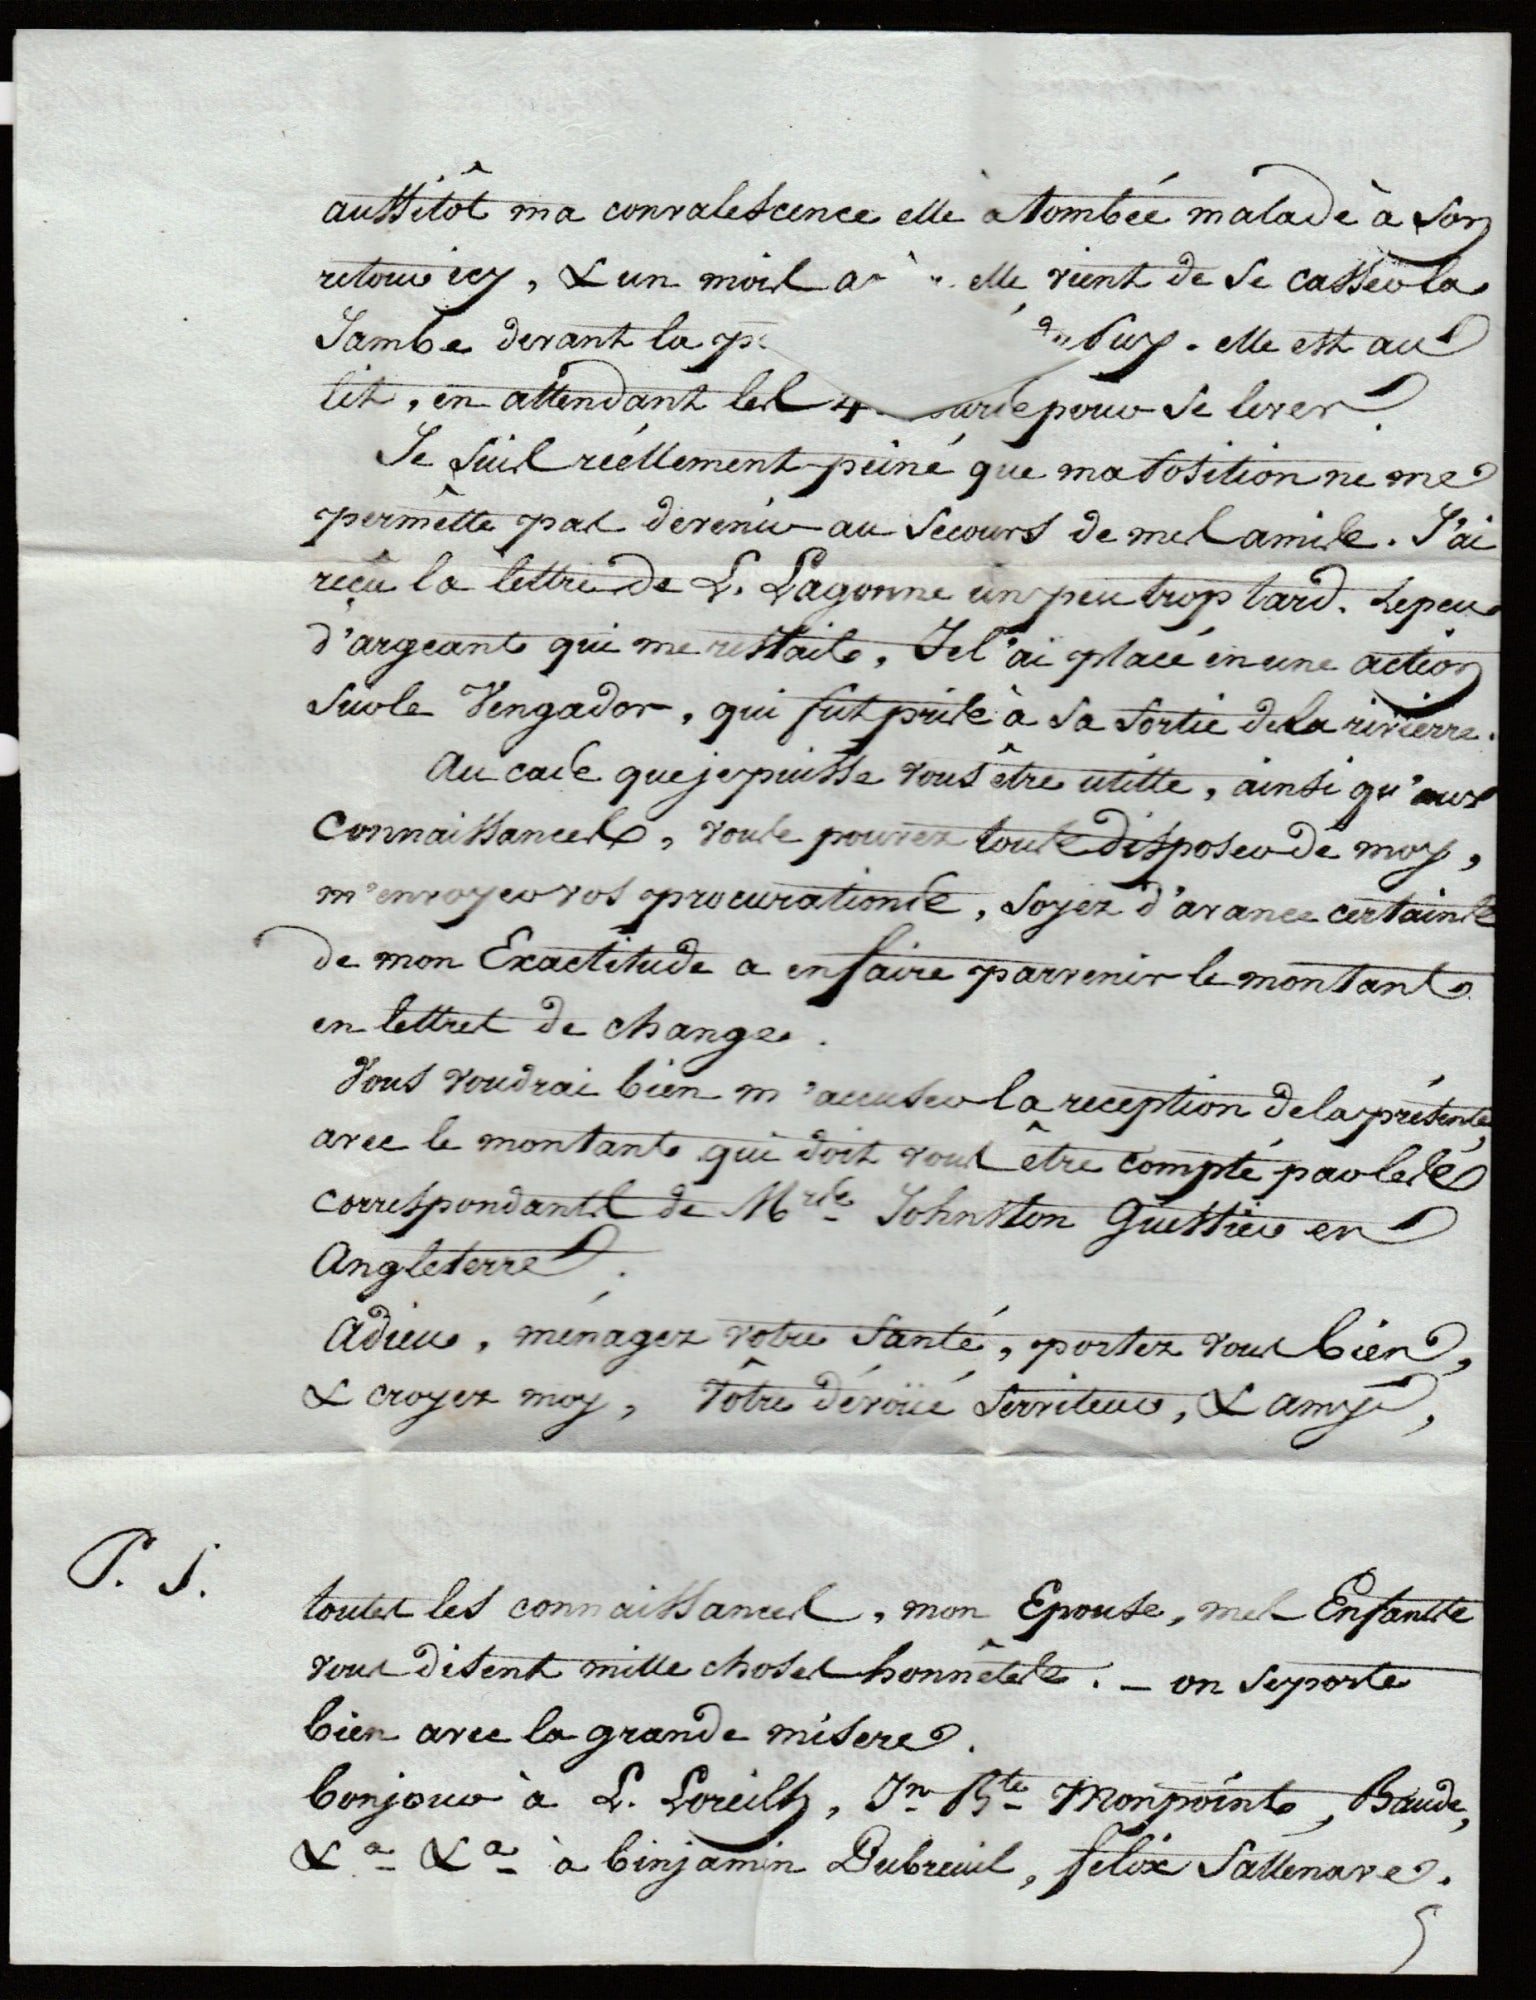 aussitôt ma convalescence elle a tombée malade à son
retour icy, & un mois elle vient de se casser la
Jambe devant la puy. elle est au
lit, en attendant les pour se lever.
Je suis réellement peiné que ma position ne me
permêtte pas de venir au secours de mes amis. J'ai
reçû la lettre de L. Lagonne un peu trop tard. Le peu
d'argeant qui me restait, Je l'ai placé en une action
sur le Vengador, qui fut pris à sa sortie de la rivierre.
Au cas que je puisse vous être utille, ainsi qu'aux
Connaissances, vous pouvez tous disposer de moy,
m'envoyer vos procurations, soyez d'avance certains
de mon Exactitude a en faire parvenir le montant
en lettres de change.
Vous voudrai bien m'accuser la reception de la présente,
avec le montant qui doit vous être compté par les
correspondants de Mrs Johnston Guestier en
Angleterre.
Adieu, ménagez votre santé, portez vous bien,
& croyez moy, Vôtre dévoüé serviteur, & amy,
P. S.
toutes les connaissances, mon Epouse, mes Enfants
vous disent mille choses honnêtes. — on se porte
bien avec la grande misere.
bonjour à L. Loreilh, Jn Bte Monpoint, Baude,
&a &a à binjamin Dubreuil, felix Sallenave.